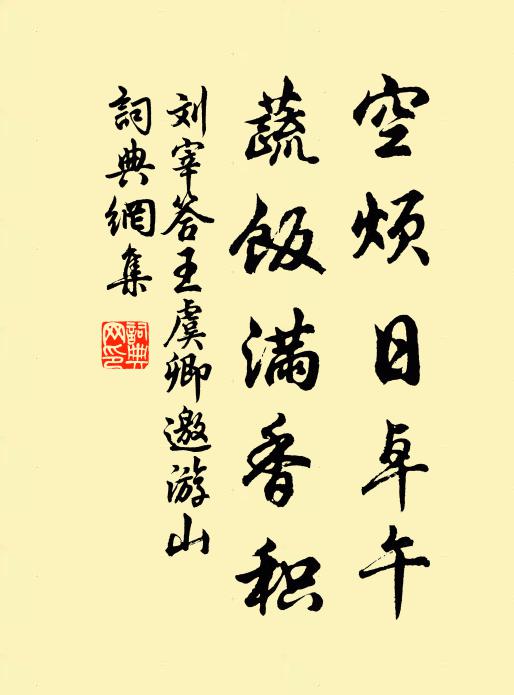 空烦日卓午
蔬飯满香积
刘宰答王虞卿邀游山
詞典網集
詞典
网印